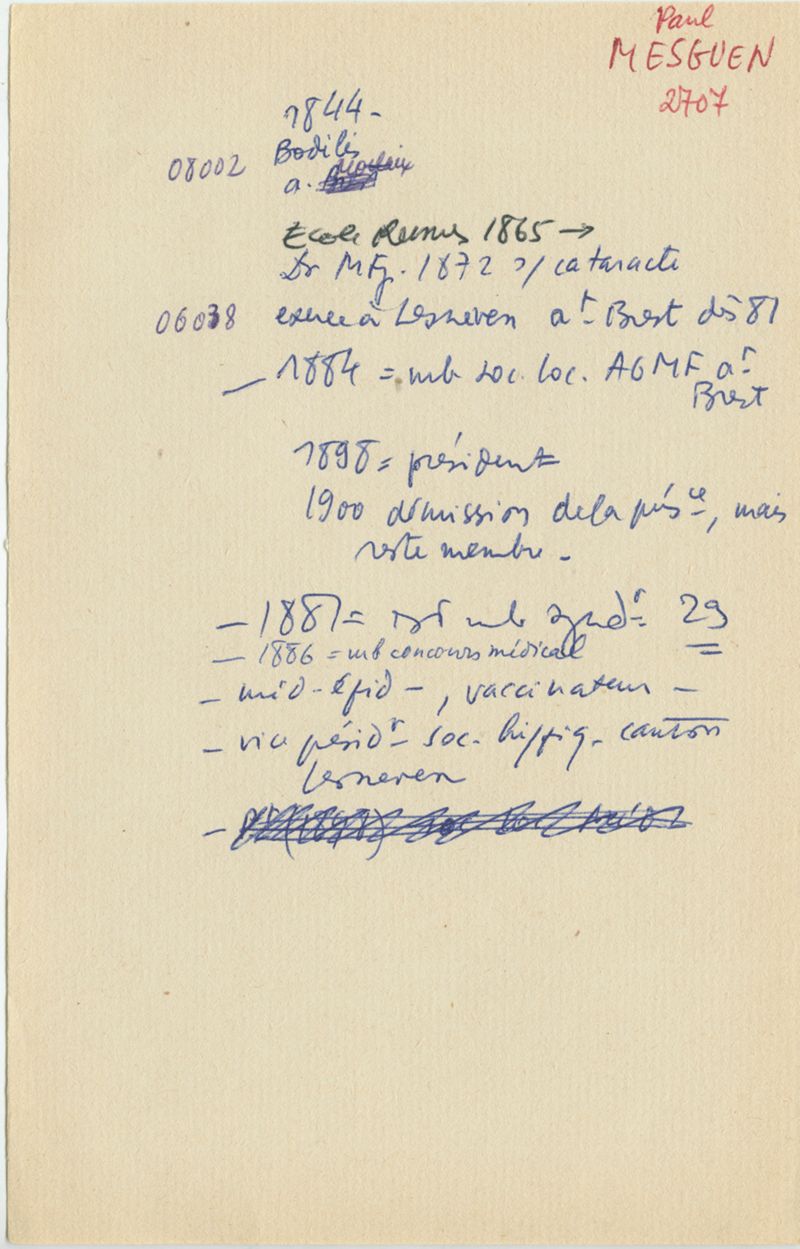 Paul
MESGUEN
2707
1844 -
Bodilis
08002
a. Morlaix
Ecole Rennes 1865 →
Dr MFg. 1872 s/ cataracte
06038 exerce à Lesneven at Brest dès 81
— 1884 = mb soc. loc. AGMF at
Brest
1898 = président
1900 démission de la présce, mais
reste membre -
— 1881 = mb synd 29
— 1886 = mb concours médical
- méd-épid -, vaccinateur -
- vice présidt soc. hippiq. canton
Lesneven